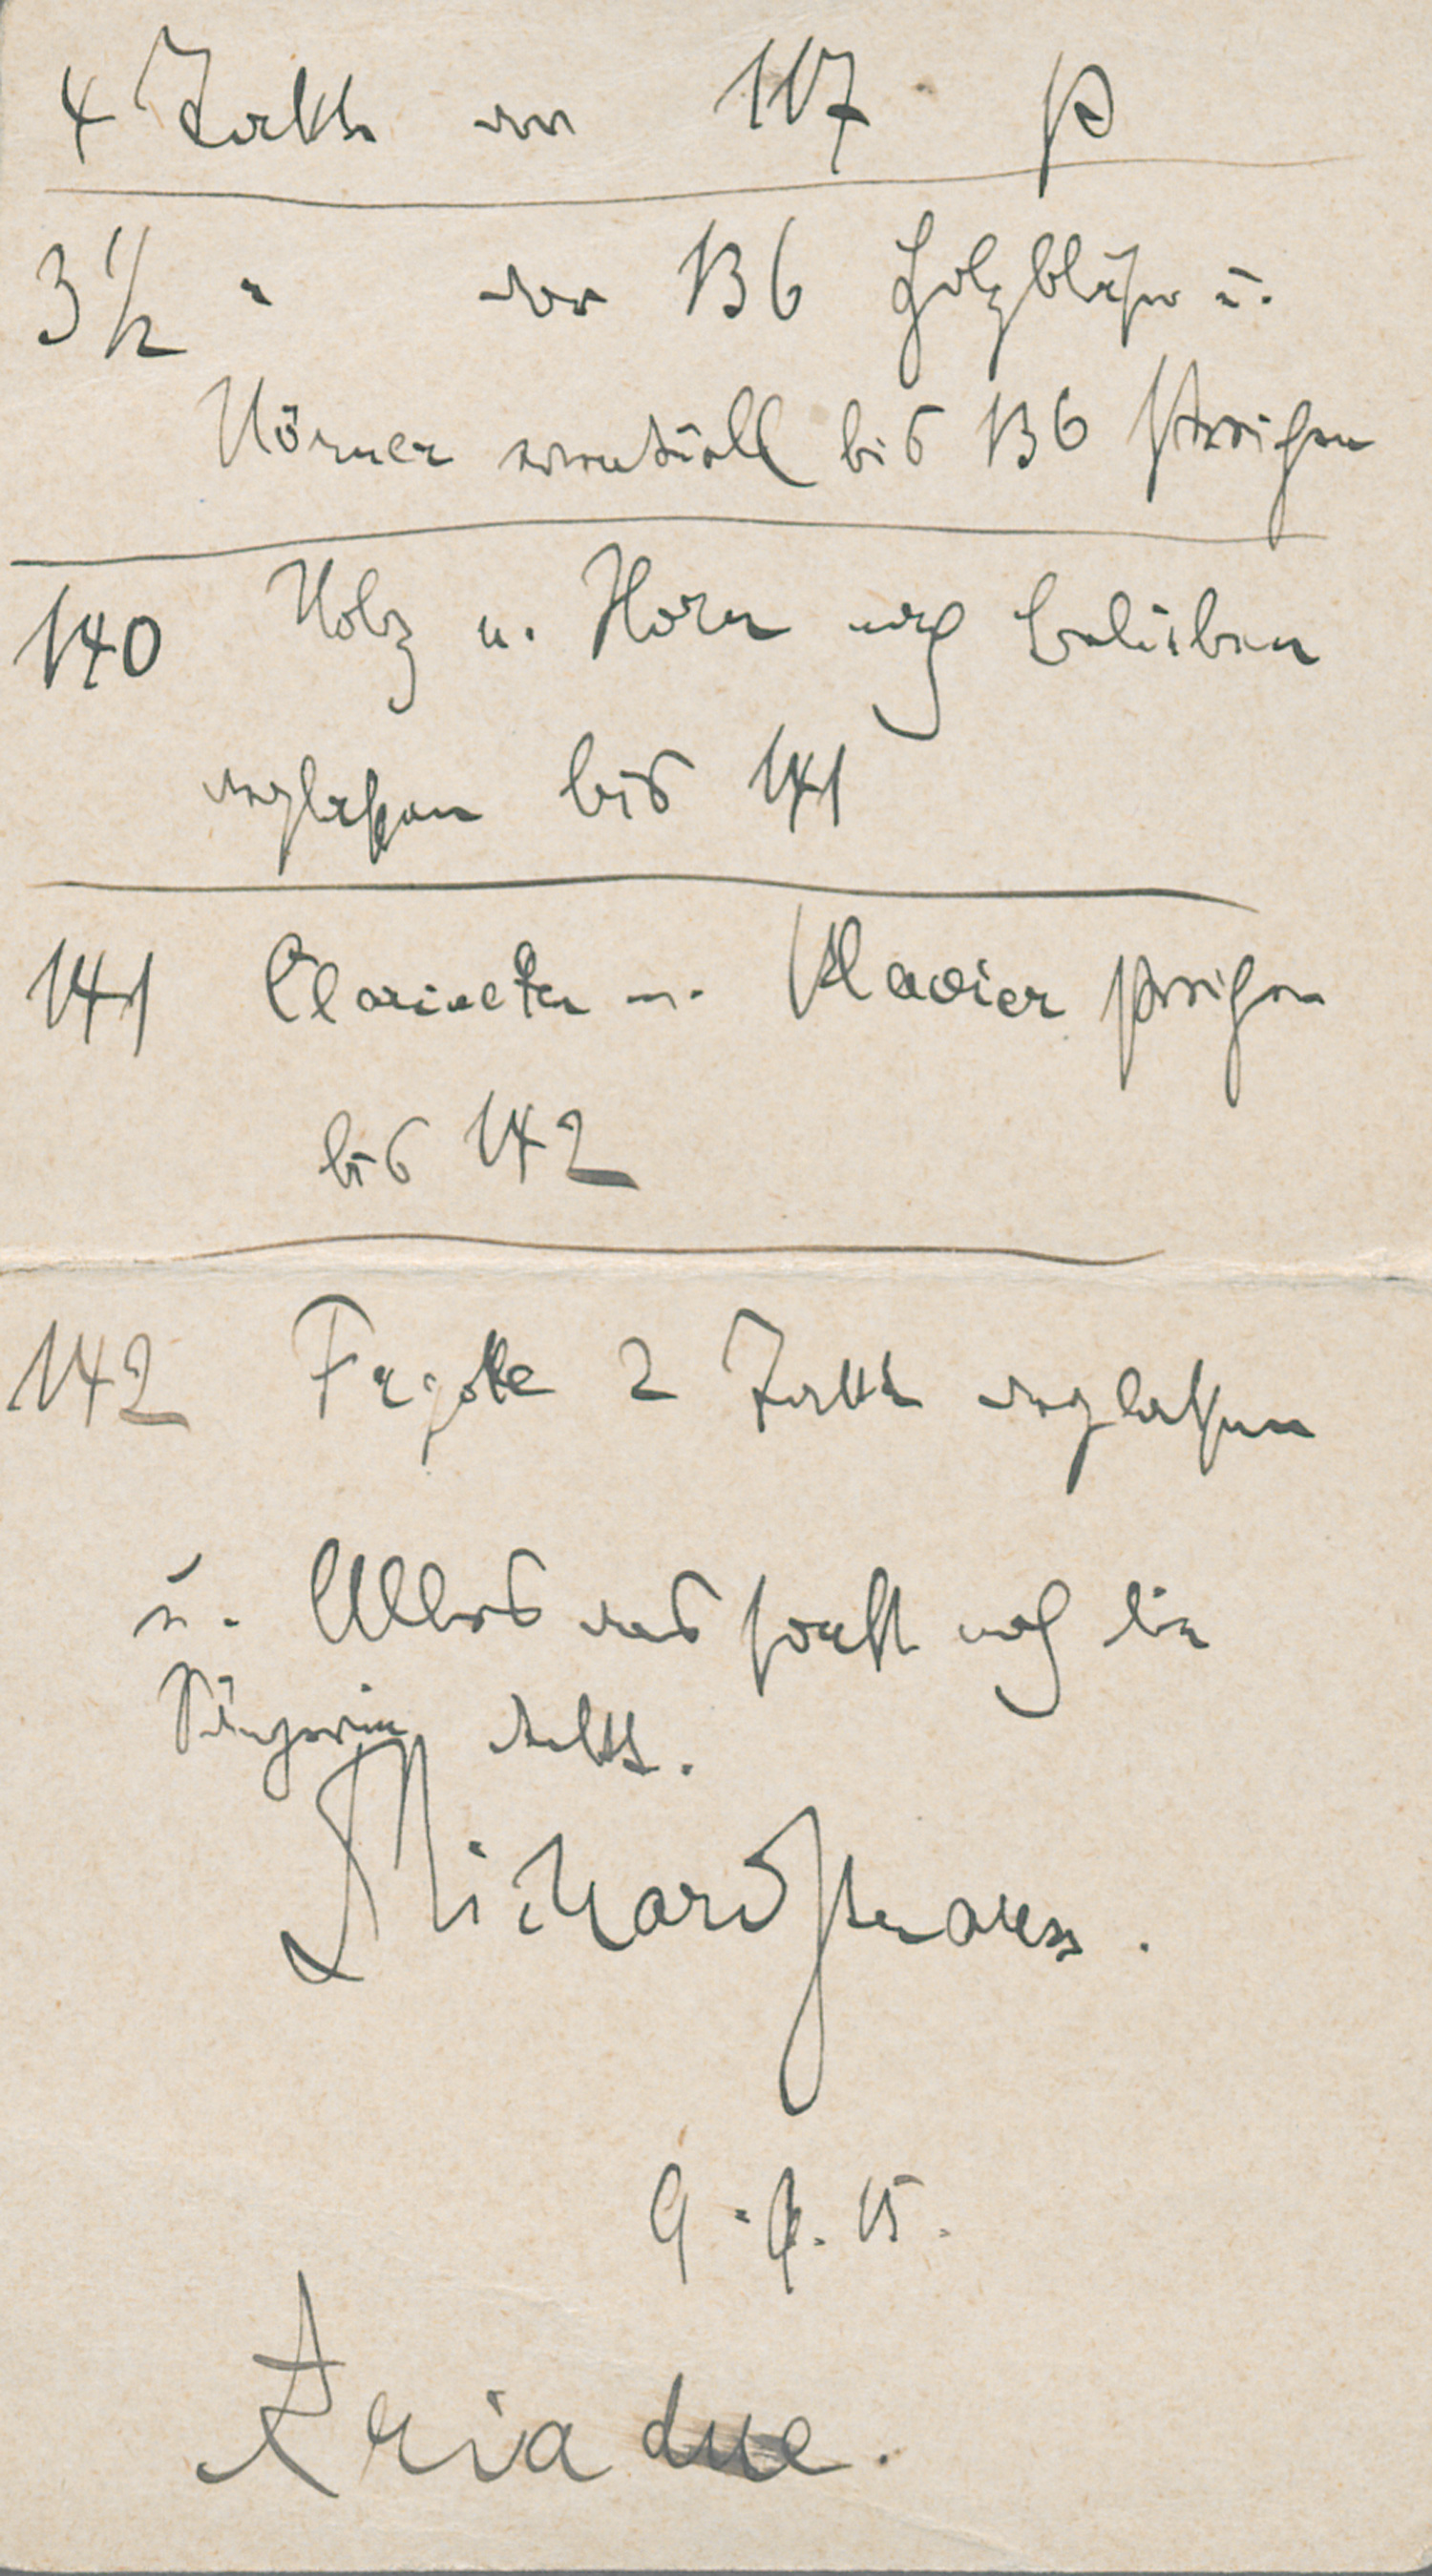 4 Takte vor 117 p
3 1/2 " vor 136 Holzbläser u.
Hörner eventuell bis 136 streichen
140 Holz u. Horn nach Belieben
weglassen bis 141
141 Clarinetten u. Klavier streichen
bis 142
142 Fagotte 2 Takte weglassen
u. Alles was sonst noch die
Sängerin deckt.
Richard Strauss.
9. 15.
Ariadne.